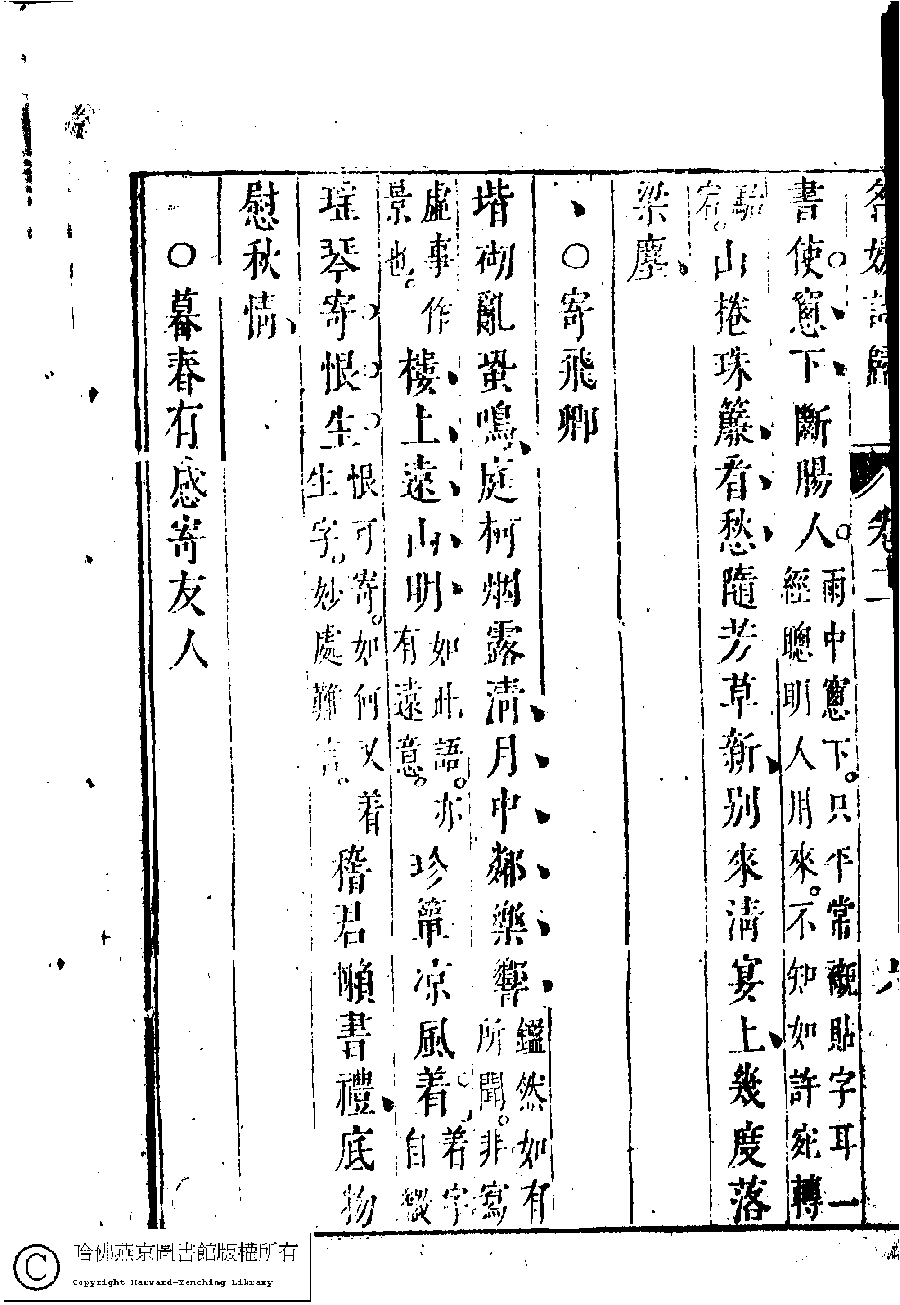 名媛詩歸 卷十一 六
書使窻下斷腸人雨中窻下只平常襯貼字耳一經聰明人用來不知如許宛轉
駘宕山捲珠簾看愁隨芳草新别來清宴上幾度落
梁塵
○寄飛卿
堦砌亂蛩鳴庭柯烟露清月中鄰樂響鏗然如有所聞非寫
虛事作景也樓上遠山明如此語亦有遠意珍簟凉風着着字自緻
瑶琴寄恨生恨可寄如何又着生字妙處難言嵇君懶書禮底物
慰秋情
○暮春有感寄友人
哈佛燕京圖書館版權所有
Copyright Harvard-Yenching Library